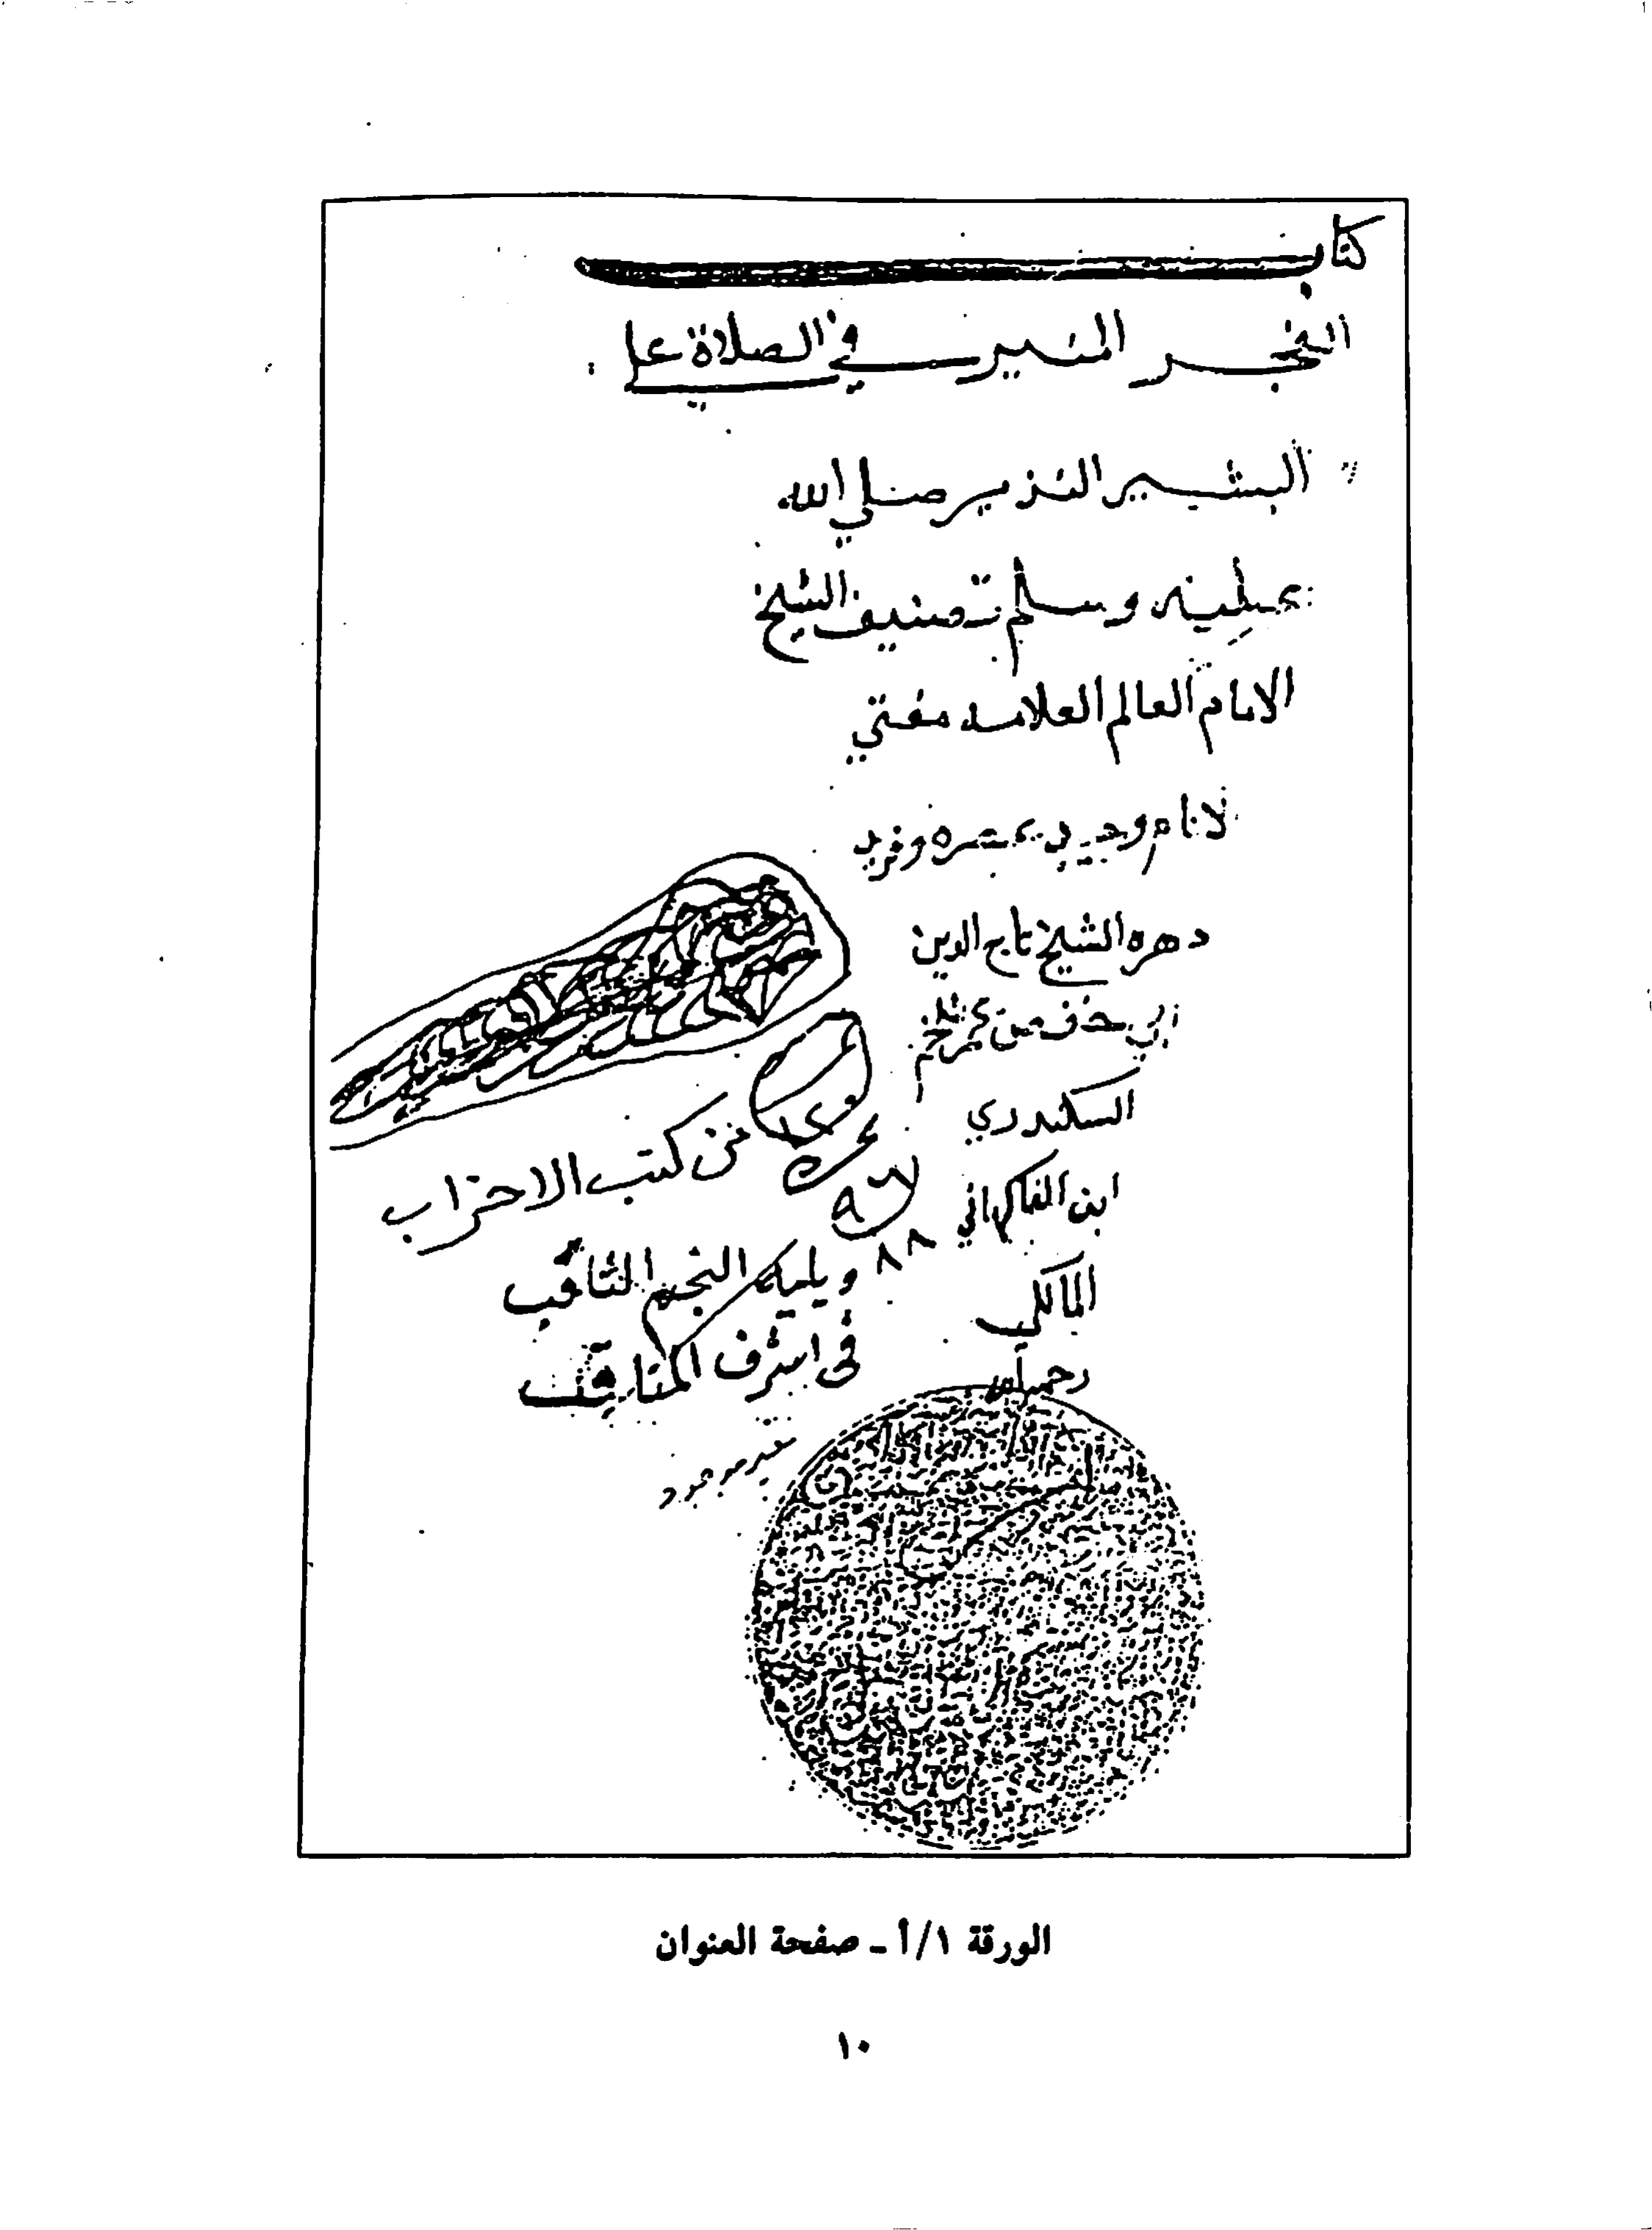 كتاب
الفجر المنير في الصلاة علي
البشير النذير صلي الله
عليه وسلم تصنيف الشيخ
الامام العالم العلامه مفتي
لانام وحيد عصره وفريد
دهره الشيخ تاج الدين
ابي حفص عمر اللخمي
السكندري
ابن الفاكهاني
المالكي
رحمه الله
من كتب الاحزاب
٨٨ ويليه النجم الثاقب
في اشرف المناقب
غير موجود
الورقة ١/أ - صفحة العنوان
١٠